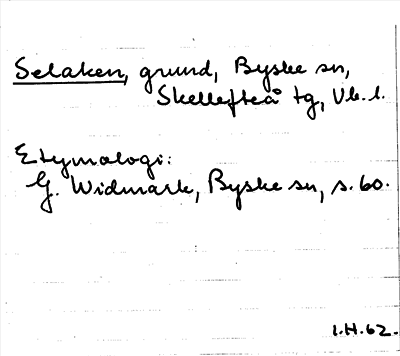 Selaken, grund, Byske sn,
Skellefteå tg, Vb. l.
Etymologi:
G. Widmark, Byske sn, s. 60.
I.H. 62.